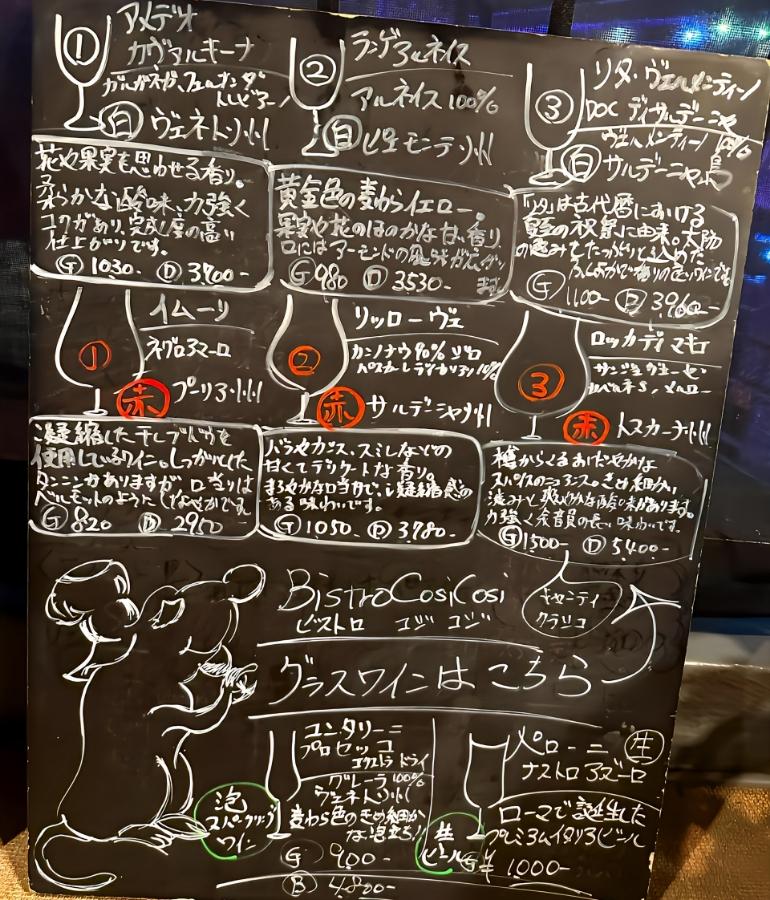 ①
アメデオ
カヴァルキーナ
ガルガネガ、フェルナンダ
トレビアーノ
白 ヴェネト州
花や果実を思わせる香り。
柔らかな酸味、力強く
コクがあり、完成度の高い
仕上がりです。
G 1030- D 3,700-
②
ランゲアルネイス
アルネイス100%
白 ピエモンテ州
黄金色の麦わらイエロー。
果実や花のほのかな甘い香り
口にはアーモンドの風味がひろがり
ます
G 980 D 3530-
③
リタ・ヴェルメンティーノ
DOC ディサルデーニャ
ヴェルメンティーノ 100%
白 サルデーニャ島
「リタ」は古代暦における
の祝祭に由来。太陽
の恵みをたっぷりと込めた
ふくよかで香りの良いワインです
G 1100- D 3,960-
①
イムーリ
ネグロアマーロ
赤 プーリア州
凝縮した干しブドウを
使用しているワイン。しっかりとした
タンニンがありますが、口当りは
ベルモットのように しなやかです。
G 820 D 2950
②
リッローヴェ
カンノナウ90% ボ
10%
赤 サルデーニャ州
バラやカシス、スミレなどの
甘くてデリケートな香り。
まろやかな口当りで、凝縮感の
ある味わいです。
G 1050. D 3,780-
③
ロッカディ マキエ
サンジョヴェーゼ
カベルネS、メルロー
赤 トスカーナ州
樽からくるおだやかな
スパイスのニュアンス。きめ細かい
渋みと爽やかな酸味があります。
力強く余韻の長い味わいです。
G 1500- D 5,400-
キャンティ
クラシコ
BistroCosiCosi
ビストロ コジ コジ
グラスワインは こちら
泡
スパークリング
ワイン
ユンタリーニ
プロセッコ
エクストラ ドライ
グレーラ 100%
ヴェネト州
麦わら色のきめ細か
な泡立ち!
G 900-
B 4,800-
生
ビール
ペローニ 生
ナストロ アズーロ
ローマで誕生した
プレミアムイタリアビール
G ¥1,000-